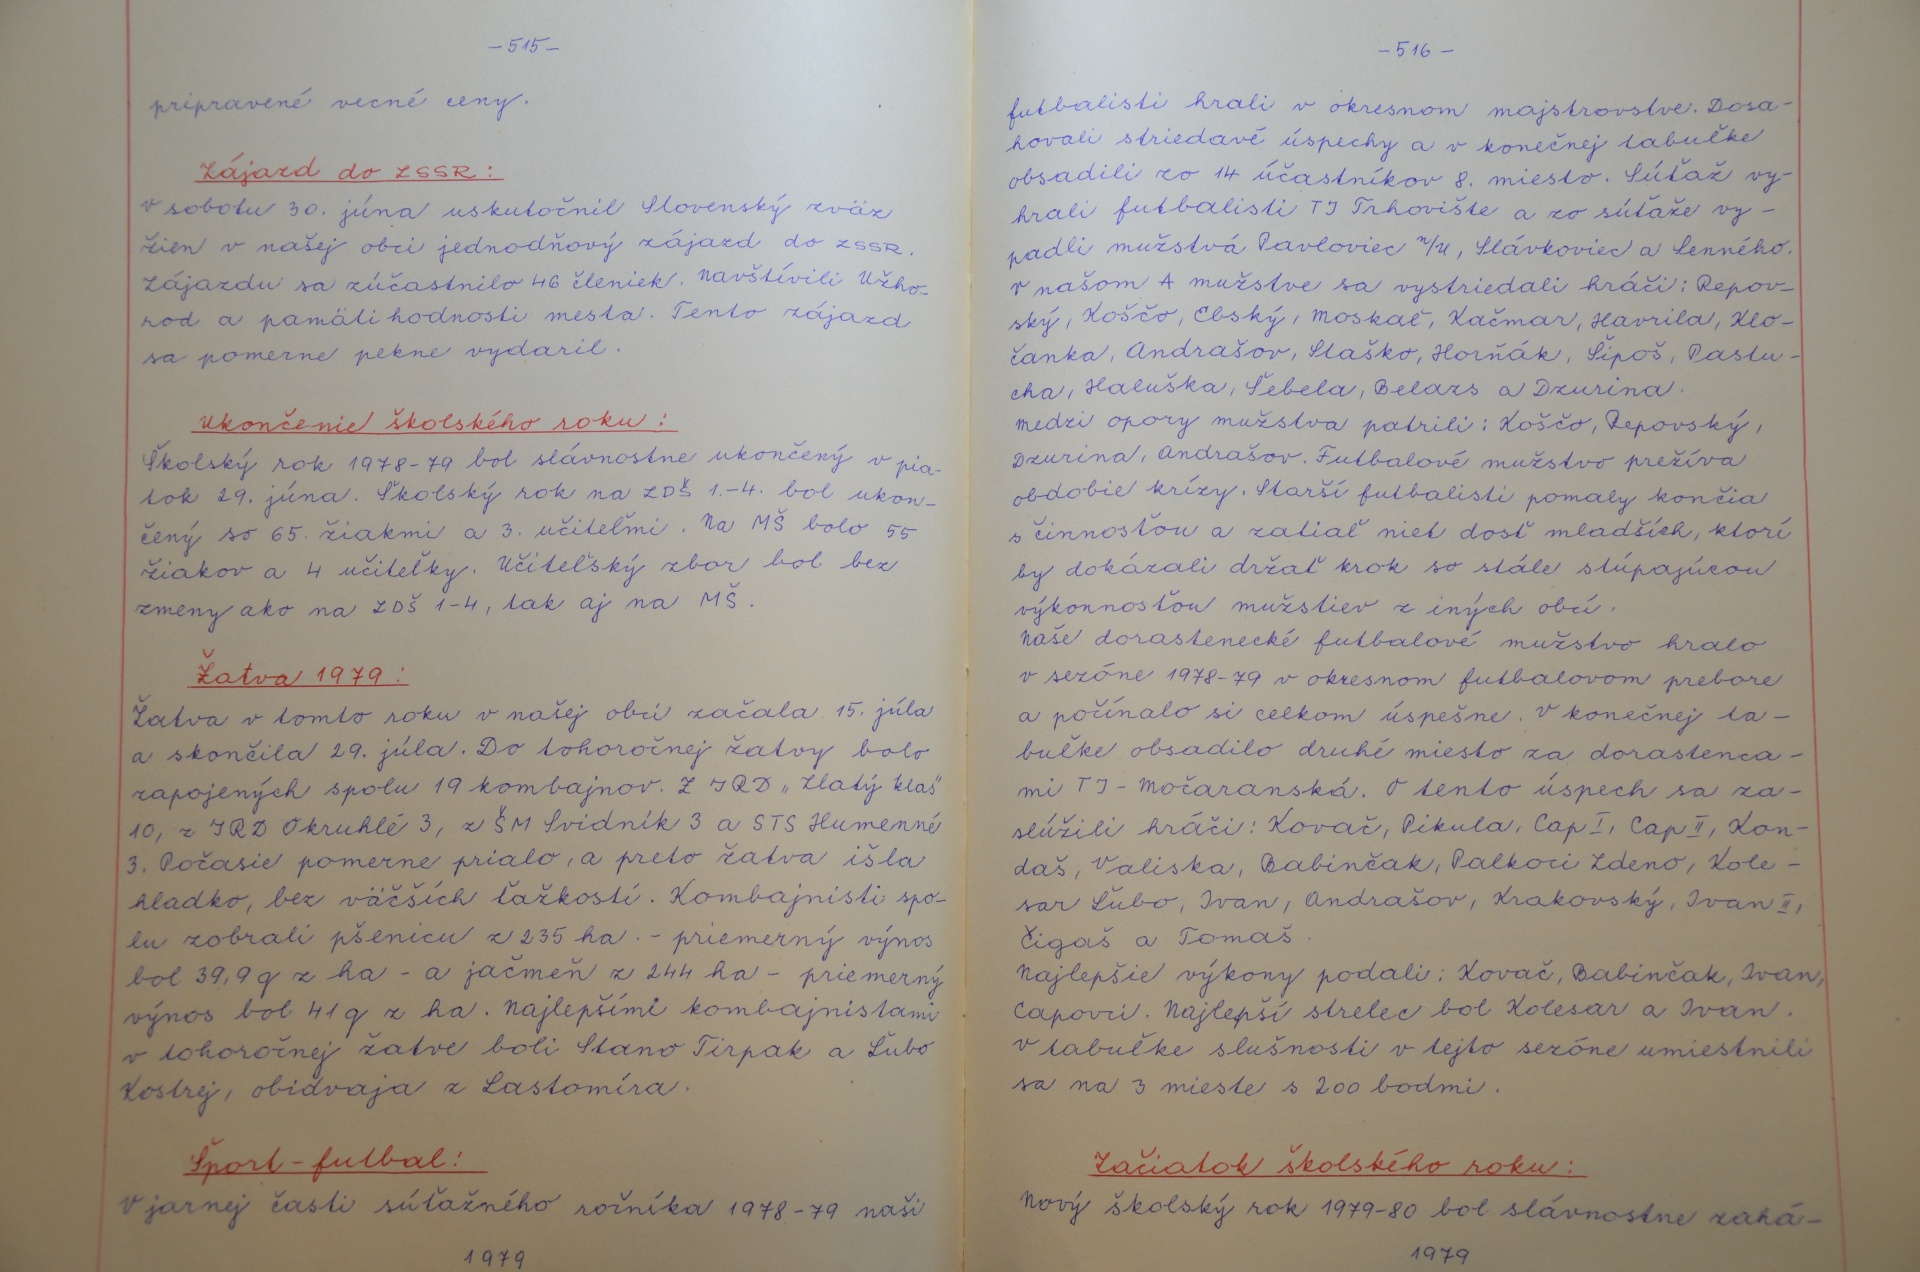 -515-
pripravené vecné ceny.
Zájazd do ZSSR:
V sobotu 30. júna uskutočnil Slovenský zväz
žien v našej obci jednodňový zájazd do ZSSR.
Zájazdu sa zúčastnilo 46 členiek. Navštívili Užho-
rod a pamätihodnosti mesta. Tento zájazd
sa pomerne pekne vydaril.
Ukončenie školského roku:
Školský rok 1978-79 bol slávnostne ukončený v pia-
tok 29. júna. Školský rok na ZDŠ 1.-4. bol ukon-
čený so 65. žiakmi a 3. učiteľmi. Na MŠ bolo 55
žiakov a 4 učiteľky. Učiteľský zbor bol bez
zmeny ako na ZDŠ 1-4, tak aj na MŠ.
Žatva 1979:
Žatva v tomto roku v našej obci začala 15. júla
a skončila 29. júla. Do tohoročnej žatvy bolo
zapojených spolu 19 kombajnov. Z JRD „Zlatý klas"
10, z JRD Okruhlé 3, z ŠM Svidník 3 a STS Humenné
3. Počasie pomerne prialo, a preto žatva išla
hladko, bez väčších ťažkostí. Kombajnisti spo-
lu zobrali pšenicu z 235 ha. - priemerný výnos
bol 39,9 q z ha - a jačmeň z 244 ha - priemerný
výnos bol 41 q z ha. Najlepšími kombajnistami
v tohoročnej žatve boli Stano Tirpak a Ľubo
Kostrej, obidvaja z Lastomíra.
Šport-futbal:
V jarnej časti súťažného ročníka 1978-79 naši
1979
-516-
futbalisti hrali v okresnom majstrovstve. Dosa-
hovali striedavé úspechy a v konečnej tabuľke
obsadili zo 14 účastníkov 8. miesto. Súťaž vy-
hrali futbalisti TJ Trhovište a zo súťaže vy-
padli mužstvá Pavloviec n/U, Slávkoviec a Senného.
V našom A mužstve sa vystriedali hráči: Repov-
ský, Koščo, Ebský, Moskaľ, Kačmar, Havrila, Klo-
čanka, Andrašov, Staško, Horňák, Šipoš, Pastu-
cha, Haľuška, Šebela, Belazs a Dzurina.
Medzi opory mužstva patrili: Koščo, Repovský,
Dzurina, Andrašov. Futbalové mužstvo prežíva
obdobie krízy. Starší futbalisti pomaly končia
s činnosťou a zatiaľ niet dosť mladších, ktorí
by dokázali držať krok so stále stúpajúcou
výkonnosťou mužstiev z iných obcí.
Naše dorastenecké futbalové mužstvo hralo
v sezóne 1978-79 v okresnom futbalovom prebore
a počínalo si celkom úspešne. V konečnej ta-
buľke obsadilo druhé miesto za dorastenca-
mi TJ - Močaranská. O tento úspech sa za-
slúžili hráči: Kovač, Pikula, Cap I, Cap II, Kon-
daš, Valiska, Babinčak, Palkoci Zdeno, Kole-
sar Ľubo, Ivan, Andrašov, Krakovský, Ivan II,
Čigaš a Tomaš.
Najlepšie výkony podali: Kovač, Babinčak, Ivan,
Capovci. Najlepší strelec bol Kolesar a Ivan.
V tabuľke slušnosti v tejto sezóne umiestnili
sa na 3 mieste s 200 bodmi.
Začiatok školského roku:
Nový školský rok 1979-80 bol slávnostne zahá-
1979